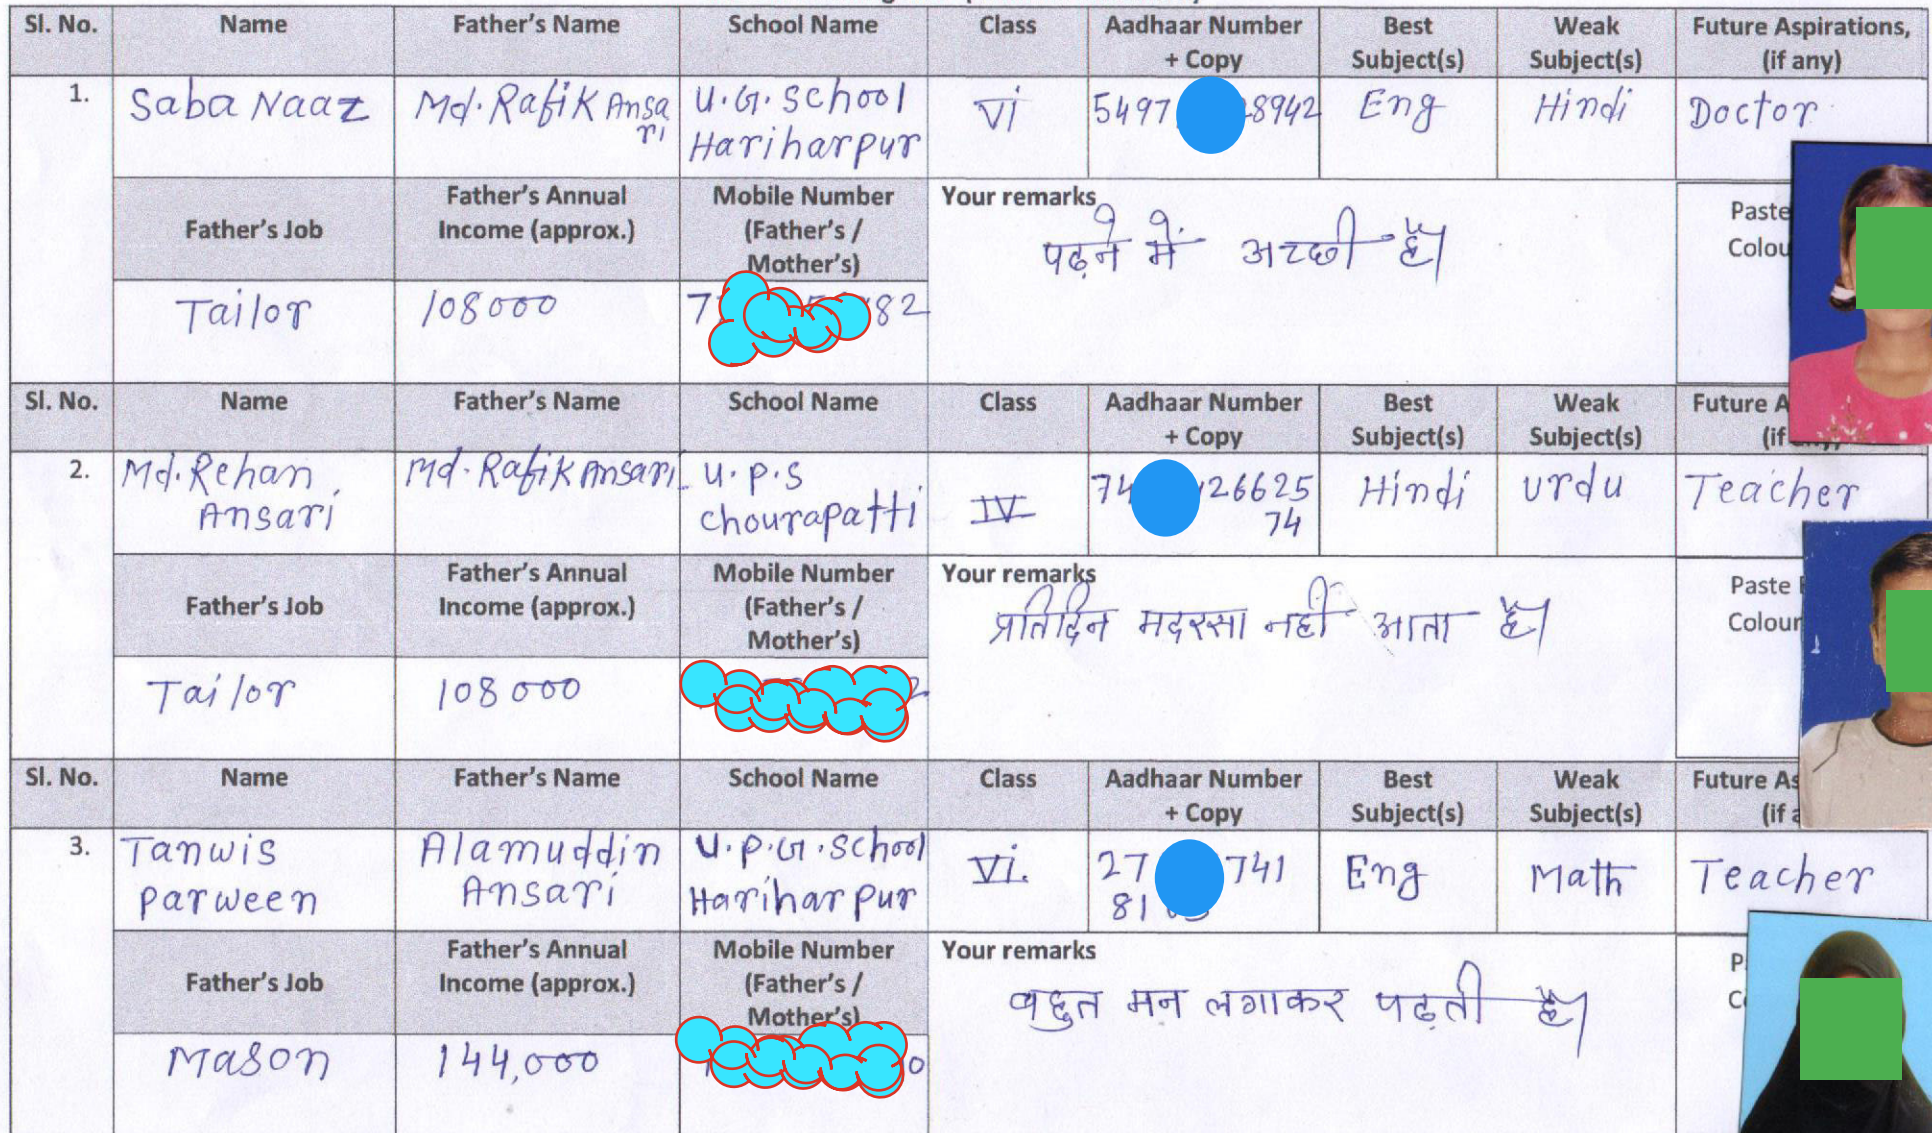 Sl. No. Name Father's Name School Name Class Aadhaar Number + Copy Best Subject(s) Weak Subject(s) Future Aspirations, (if any)
1. Saba Naaz Md. Rafik Ansari U.G. School Hariharpur VI 5497 8942 Eng Hindi Doctor
Father's Job Father's Annual Income (approx.) Mobile Number (Father's / Mother's) Your remarks Paste Colou
पढ़ने में अच्छी है।
Tailor 108000 7 82
Sl. No. Name Father's Name School Name Class Aadhaar Number + Copy Best Subject(s) Weak Subject(s) Future A (if
2. Md. Rehan Ansari Md. Rafik Ansari U.P.S Chourapatti IV 74 26625 74 Hindi Urdu Teacher
Father's Job Father's Annual Income (approx.) Mobile Number (Father's / Mother's) Your remarks Paste Colour
प्रतिदिन मदरसा नहीं आता है।
Tailor 108000
Sl. No. Name Father's Name School Name Class Aadhaar Number + Copy Best Subject(s) Weak Subject(s) Future As (if a
3. Tanwis Parween Alamuddin Ansari U.P.G. School Hariharpur VI. 27 741 81 Eng Math Teacher
Father's Job Father's Annual Income (approx.) Mobile Number (Father's / Mother's) Your remarks P C
बहुत मन लगाकर पढ़ती है।
Mason 144,000 0